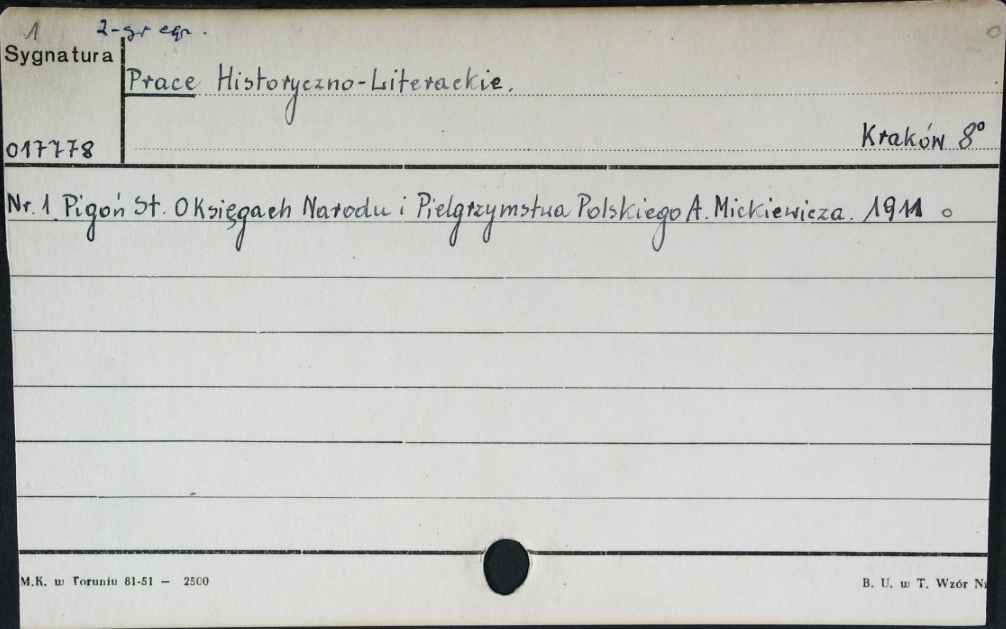 1 2-gi egz.
Sygnatura
Prace Historyczno-Literackie.
017778
Kraków 8°
Nr. 1 Pigoń St. O Księgach Narodu i Pielgrzymstwa Polskiego A. Mickiewicza. 1911
M.K. w Toruniu 81-51 — 2500
B. U. w T. Wzór Nr